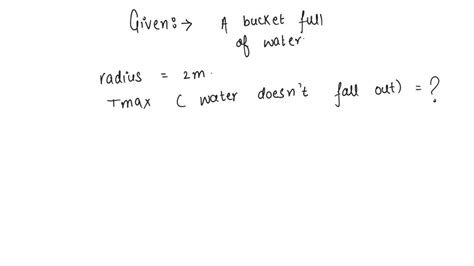 Given:→ A bucket full
of water.
radius = 2m.
Tmax ( water doesn't fall out) = ?